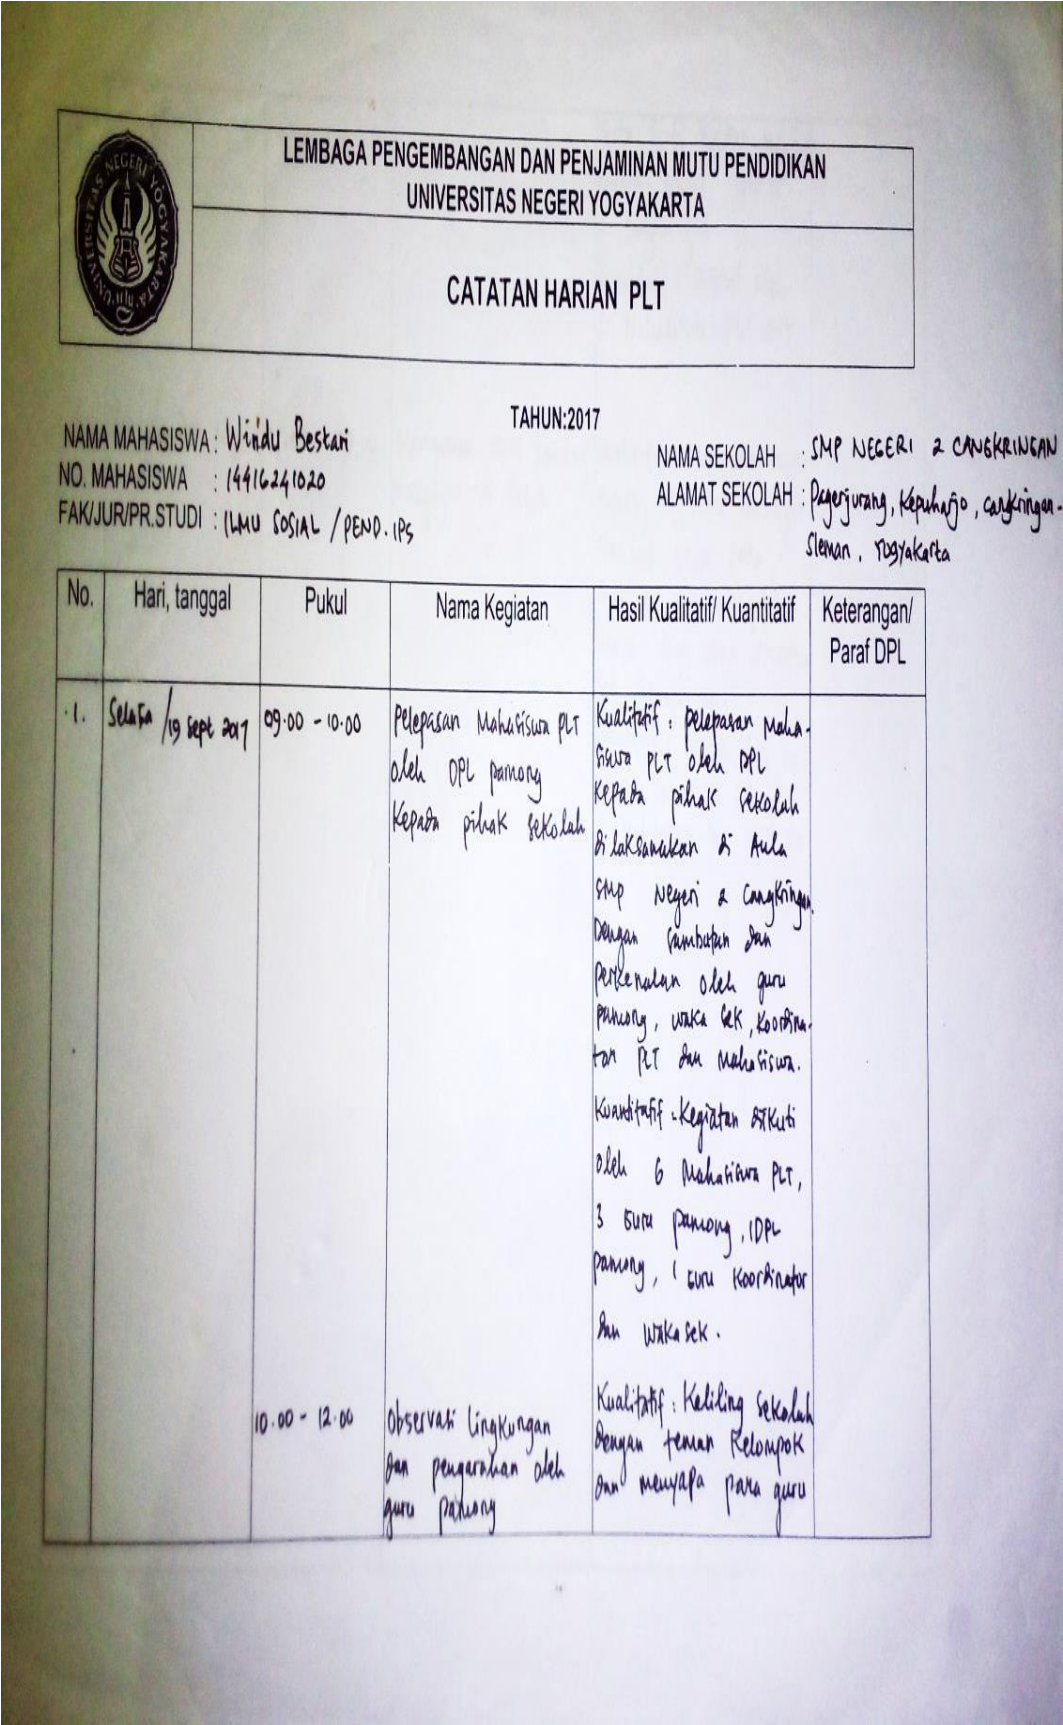 LEMBAGA PENGEMBANGAN DAN PENJAMINAN MUTU PENDIDIKAN
UNIVERSITAS NEGERI YOGYAKARTA
CATATAN HARIAN PLT
UNIVERSITAS NEGERI YOGYAKARTA
TAHUN:2017
NAMA MAHASISWA : Windu Bestari
NO. MAHASISWA : 14416241020
FAK/JUR/PR.STUDI : ILMU SOSIAL / PEND. IPS
NAMA SEKOLAH : SMP NEGERI 2 CANGKRINGAN
ALAMAT SEKOLAH : Pagerjurang, Kepuharjo, Cangkringan.
Sleman, Yogyakarta
No. Hari, tanggal Pukul Nama Kegiatan Hasil Kualitatif/ Kuantitatif Keterangan/
Paraf DPL
1. Selasa /19 Sept 2017 09.00 - 10.00
Pelepasan Mahasiswa PLT
oleh DPL pamong
kepada pihak sekolah
Kualitatif : pelepasan Maha-
siswa PLT oleh DPL
kepada pihak sekolah
dilaksanakan di Aula
SMP Negeri 2 Cangkringan.
Dengan sambutan dan
perkenalan oleh guru
pamong, waka sek, koordina-
tor PLT dan Mahasiswa.
Kuantitatif : Kegiatan diikuti
oleh 6 Mahasiswa PLT,
3 guru pamong, 1 DPL
pamong, 1 guru koordinator
dan wakasek.
10.00 - 12.00
Observasi lingkungan
dan pengarahan oleh
guru pamong
Kualitatif : Keliling sekolah
dengan teman kelompok
dan menyapa para guru